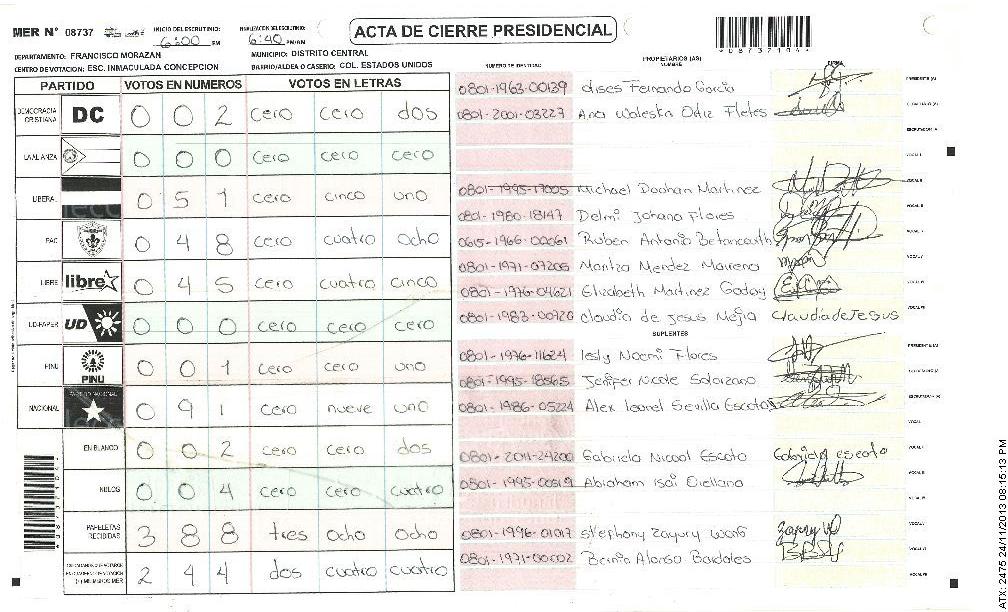 MER N° 08737
INICIO DEL ESCRUTINIO:
6:00 PM
FINALIZACION DEL ESCRUTINIO:
6:40 PM/AM
ACTA DE CIERRE PRESIDENCIAL
DEPARTAMENTO: FRANCISCO MORAZAN
MUNICIPIO: DISTRITO CENTRAL
CENTRO DE VOTACION: ESC. INMACULADA CONCEPCION
BARRIO/ALDEA O CASERIO: COL. ESTADOS UNIDOS
PARTIDO VOTOS EN NUMEROS VOTOS EN LETRAS
DEMOCRACIA CRISTIANA DC 0 0 2 cero cero dos
LA ALIANZA 0 0 0 cero cero cero
LIBERAL 0 5 1 cero cinco uno
PAC 0 4 8 cero cuatro ocho
LIBRE libre 0 4 5 cero cuatro cinco
UD-FAPER UD 0 0 0 cero cero cero
PINU PINU 0 0 1 cero cero uno
NACIONAL 0 9 1 cero nueve uno
EN BLANCO 0 0 2 cero cero dos
NULOS 0 0 4 cero cero cuatro
PAPELETAS RECIBIDAS 3 8 8 tres ocho ocho
2 4 4 dos cuatro cuatro
NUMERO DE IDENTIDAD
PROPIETARIOS (AS)
NOMBRE
FIRMA
0801-1963-00139 Fernando Garcia
0801-2001-03227 Ana Waleska Ordiz Fletes
0801-1995-17005 Michael Martinez
0801-1980-18147 Delmi Johana Flores
0615-1966-00061 Ruben Antonio Betancourth
0801-1971-07205 Maritza Mendez Mairena
0801-1976-04621 Elizabeth Martinez Godoy
0801-1983-00720 Claudia de Jesus Mejia Claudia de Jesus
SUPLENTES
0801-1976-11624 lesly Noemi Flores
0801-1995-18565 Jenifer Nicole Solorzano
0801-1986-05224 Alex leonel Sevilla Escoto
0801-2011-24200 Gabriela Nicool Escoto Gabriela escoto
0801-1995-00519 Abraham Isai Orellana
0801-1996-01017 Stephony Zayury
0801-1971-00002 Alonso
ATX: 2475 24/11/2013 08:15:13 PM